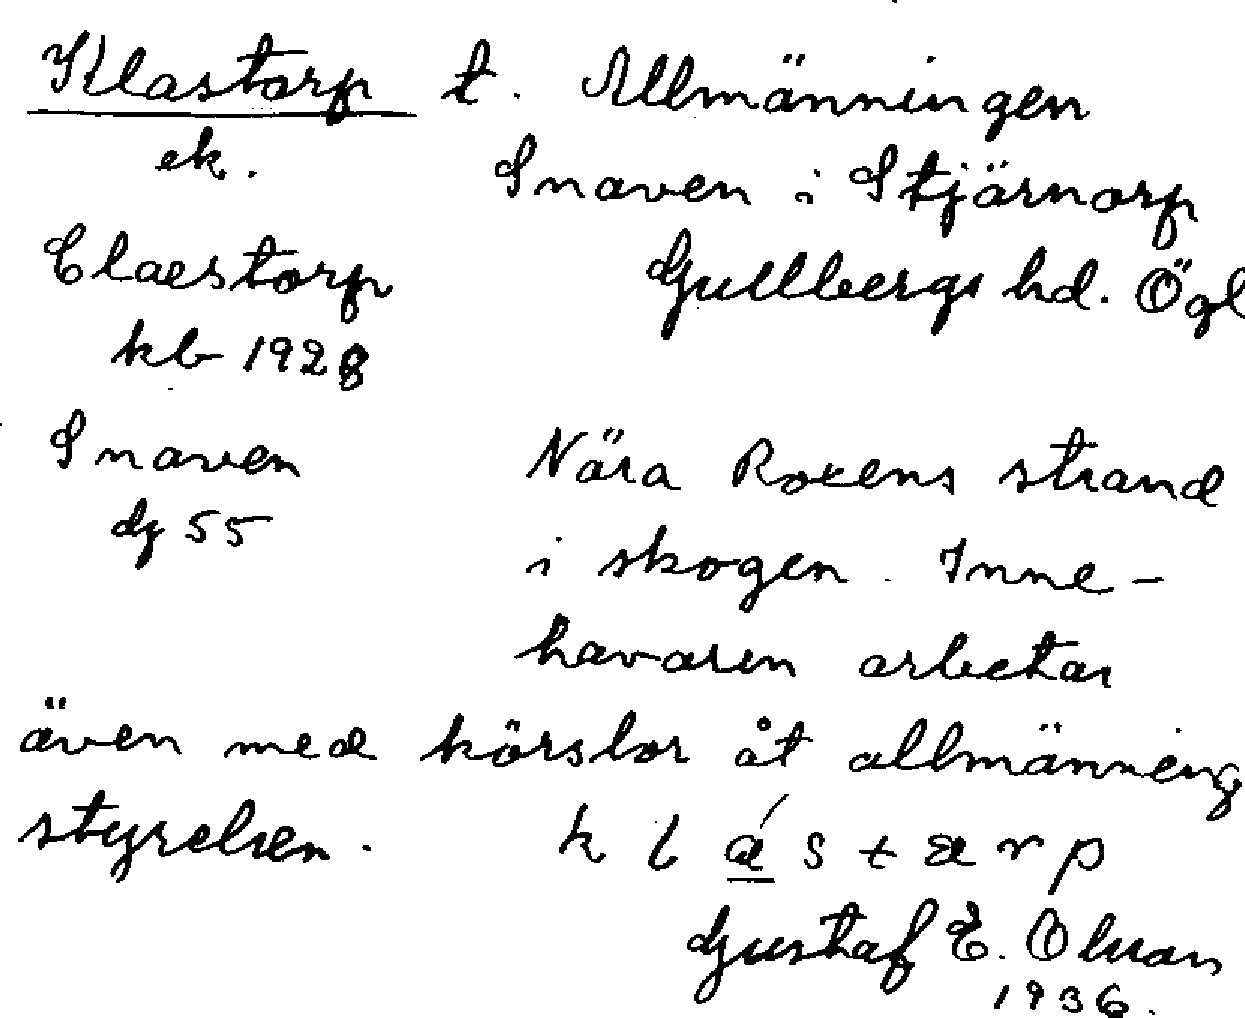 Klastorp t. Allmänningen
ek. Snaven i Stjärnorp
Claestorp Gullbergs hd. Ögl
kb 1928
Snaven Nära Roxens strand
dz 55 i skogen. Inne-
havaren arbetar
även med körslor åt allmänning
styrelsen. k l á s t æ r p
Gustaf E. Olsson
1936.